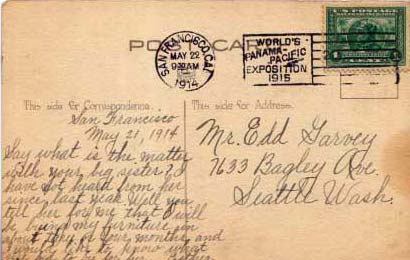 POST CARD
SAN FRANCISCO, CAL.
MAY 22
9 AM
1914
WORLD'S
PANAMA-PACIFIC
EXPOSITION
1915
U.S. POSTAGE
1 CENT 1
This side for Correspondence.
This side for Address.
San Francisco
May 21, 1914
Say what is the matter
with your big sister? I
have not heard from her
since last year. Will you
tell her for me that I will
be buying my furniture in
about two or four months and
I would like to know what
Mr. Edd Garvey
7633 Bagley Ave.
Seattle Wash.